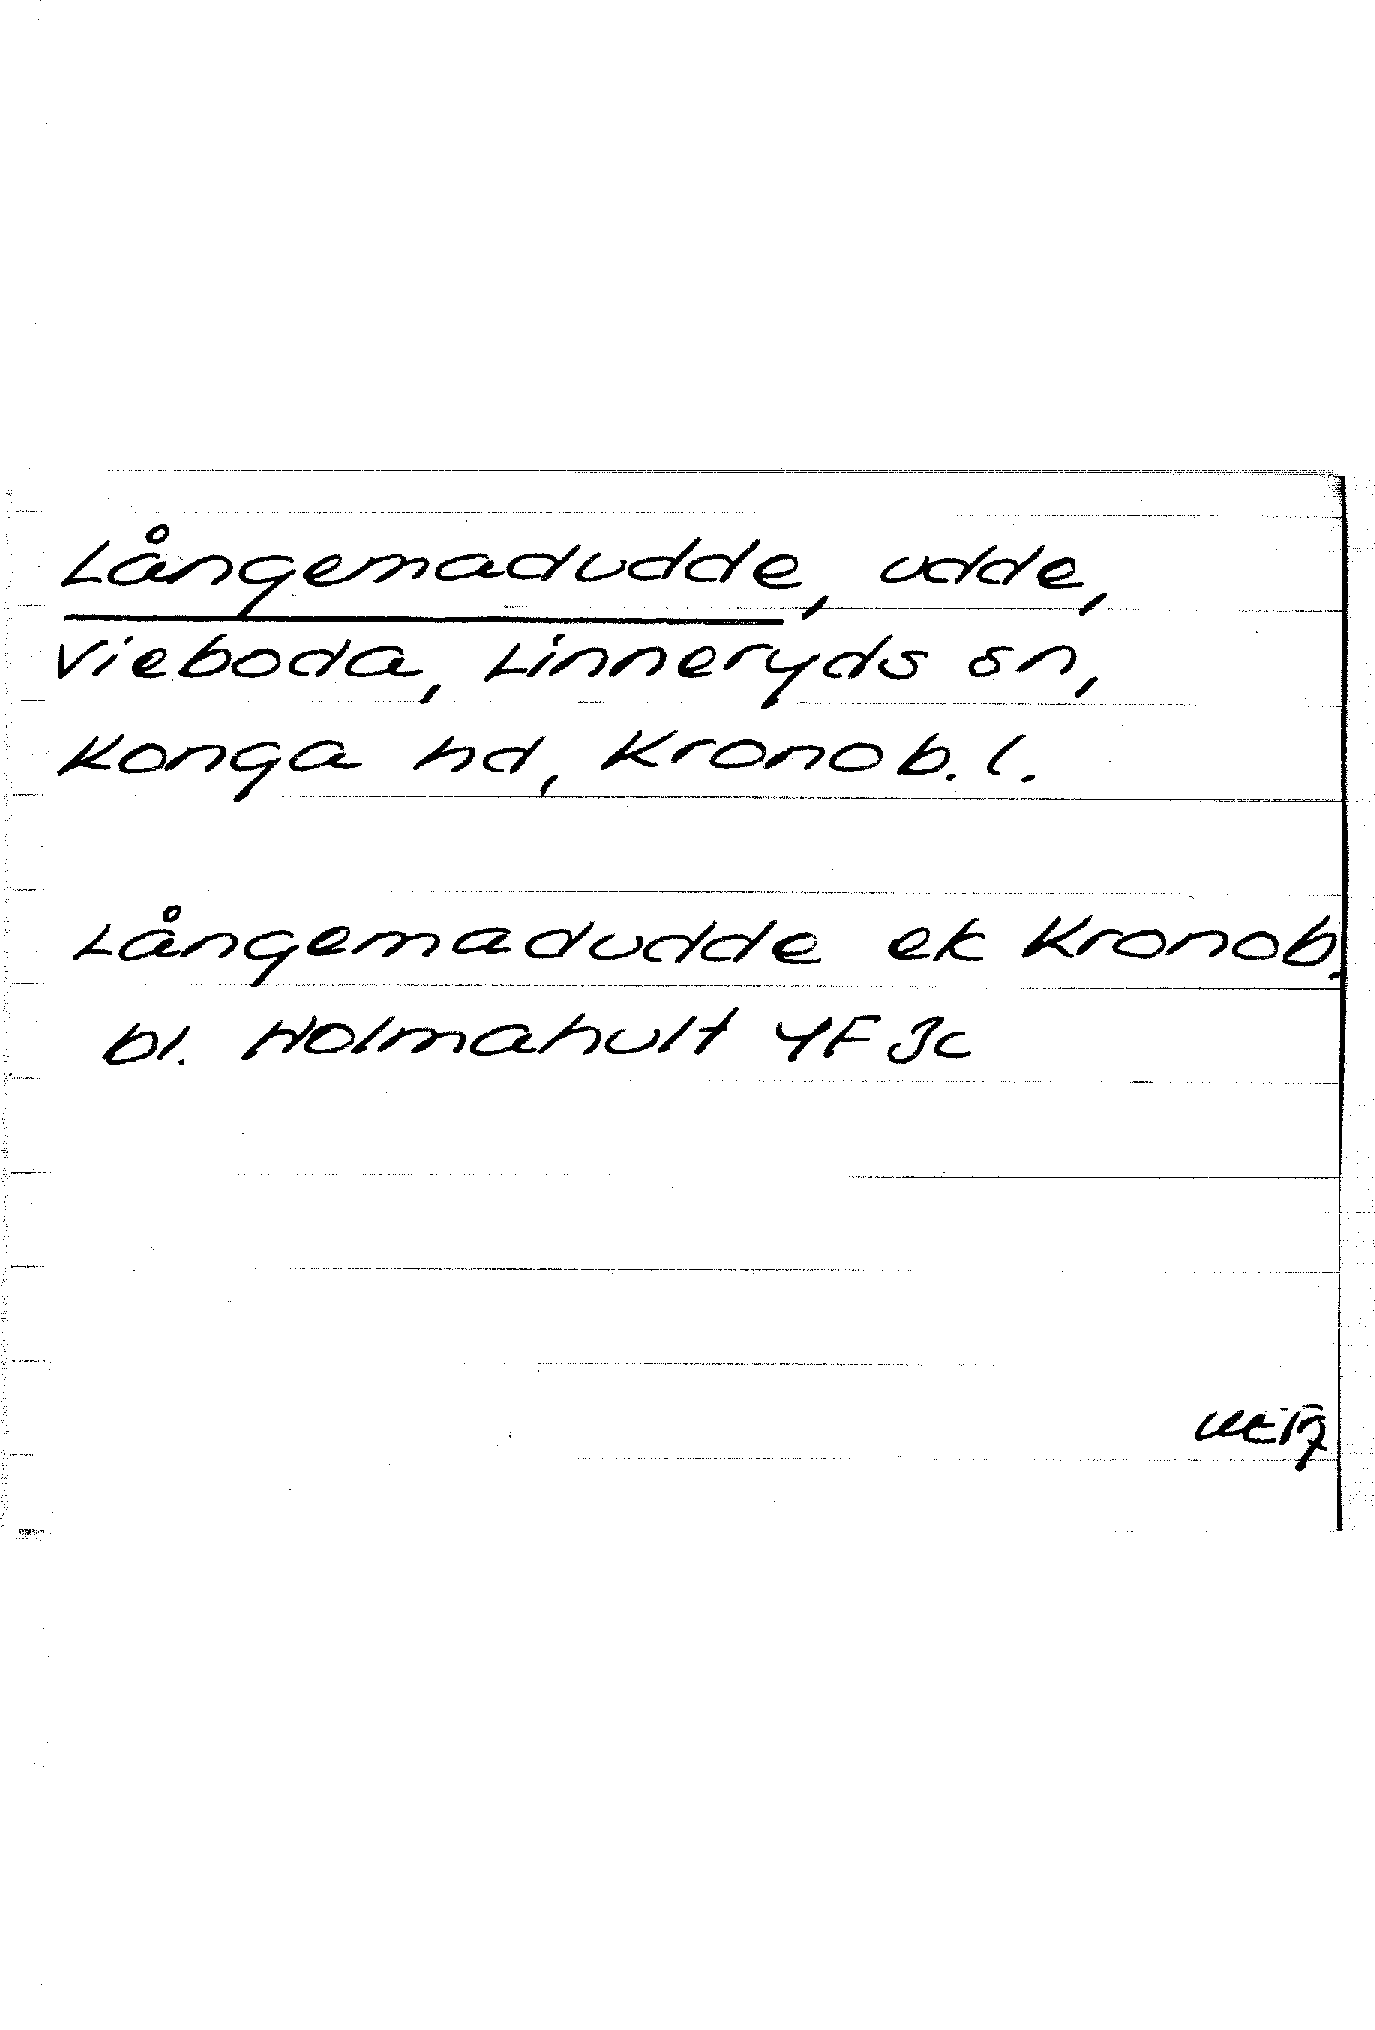 Långemadudde, udde,
Vieboda, Linneryds sn,
Konga hd, Kronob. l.
Långemadudde ek Kronob.
bl. Holmahult 4F 3c